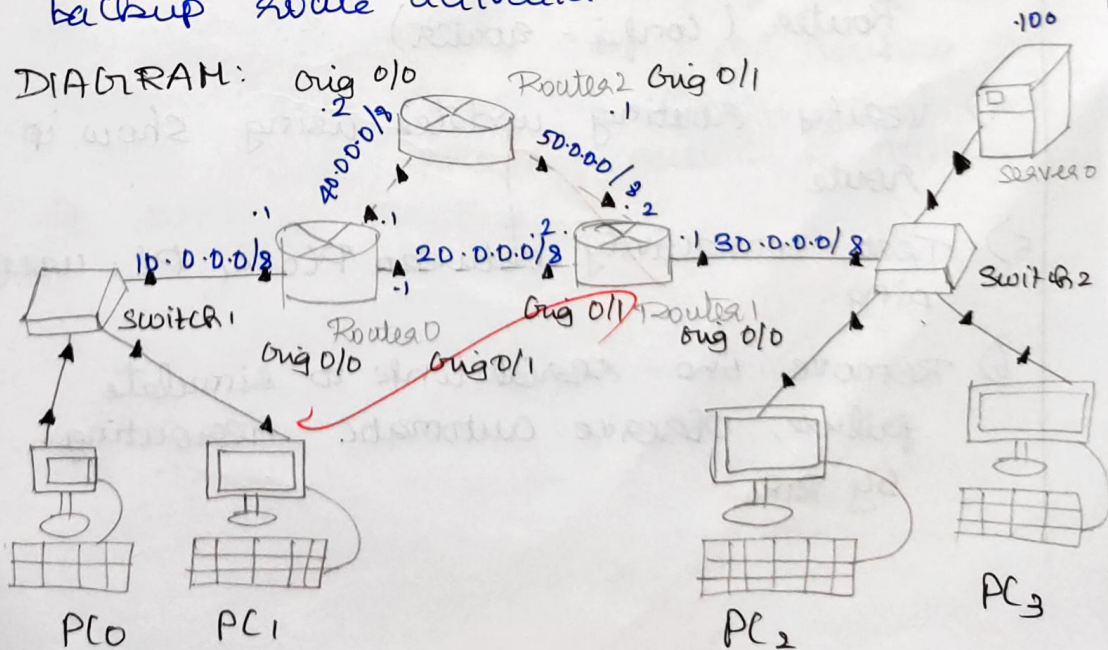 backup route
DIAGRAM:
Gig 0/0
Router2
Gig 0/1
.100
.2
40.0.0.0/8
.1
50.0.0.0/8
Server0
.1
.1
.2
.2
10.0.0.0/8
20.0.0.0/8
.1
30.0.0.0/8
Switch2
.1
Switch1
Router0
Gig 0/1
Router1
Gig 0/0
Gig 0/0
Gig 0/1
PC0
PC1
PC2
PC3